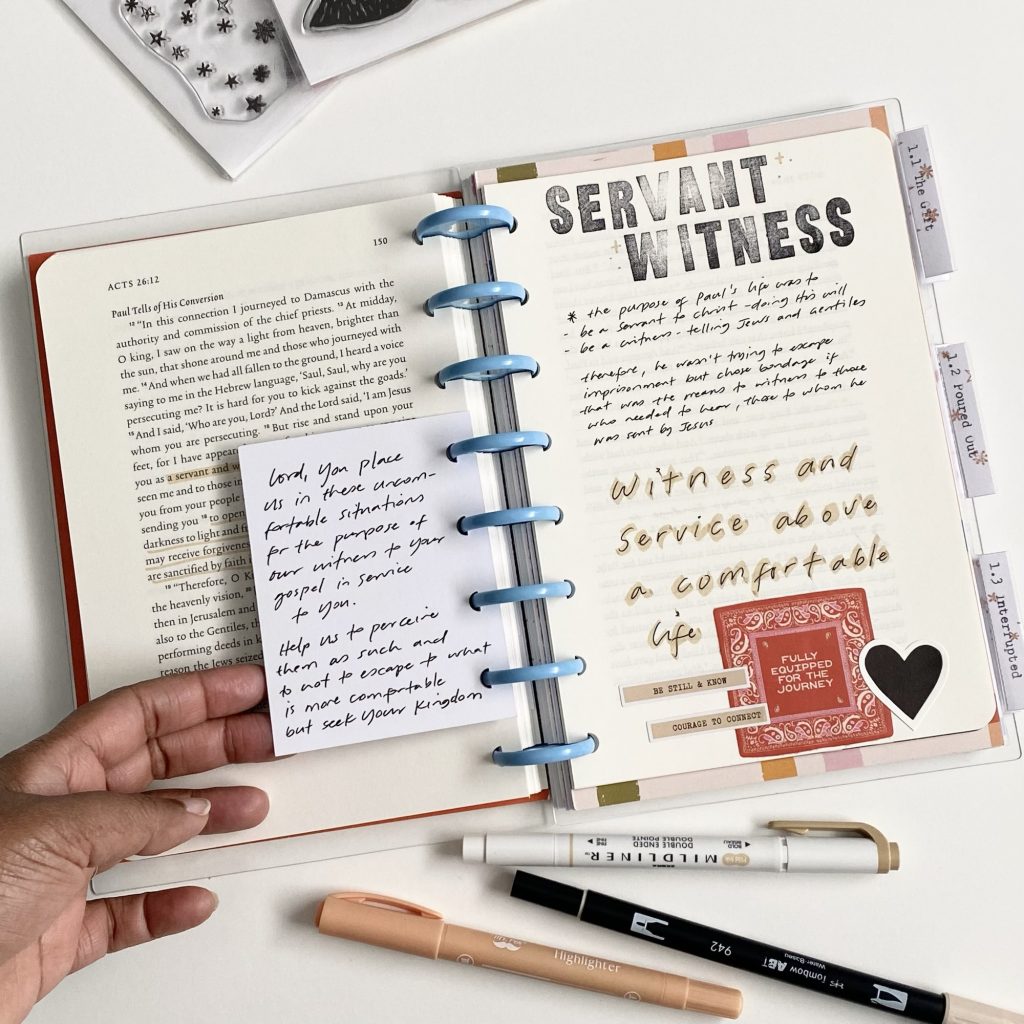 150
ACTS 26:12
Paul Tells of His Conversion
12 "In this connection I journeyed to Damascus with the
authority and commission of the chief priests. 13 At midday,
O king, I saw on the way a light from heaven, brighter than
the sun, that shone around me and those who journeyed with
me. 14 And when we had all fallen to the ground, I heard a voice
saying to me in the Hebrew language, 'Saul, Saul, why are you
persecuting me? It is hard for you to kick against the goads.'
15 And I said, 'Who are you, Lord?' And the Lord said, 'I am Jesus
whom you are persecuting. 16 But rise and stand upon your
feet, for I have appeared
you as a servant and
seen me and to those in
you from your people
sending you 18 to open
darkness to light and
may receive forgiveness
are sanctified by faith
19 "Therefore, O
the heavenly vision, 20
then in Jerusalem and
also to the Gentiles,
performing deeds in
reason the Jews seized
Lord, you place
us in these uncom-
fortable situations
for the purpose of
our witness to your
gospel in service
to you.
Help us to perceive
them as such and
to not to escape to what
is more comfortable
but seek Your Kingdom
SERVANT
WITNESS
* the purpose of Paul's life was to
- be a servant to Christ - doing His will
- be a witness - telling Jews and Gentiles
therefore, he wasn't trying to escape
imprisonment but chose bondage if
that was the means to witness to those
who needed to hear, those to whom he
was sent by Jesus
Witness and
service above
a comfortable
life
FULLY
EQUIPPED
FOR THE
JOURNEY
BE STILL & KNOW
COURAGE TO CONNECT
1.1 The Gift
1.2 Poured Out
1.3 Interrupted
MILDLINER
DOUBLE ENDED
DOUBLE POINTE
BOLD
FINE
942
Tombow ABT
Water Based
Highlighter